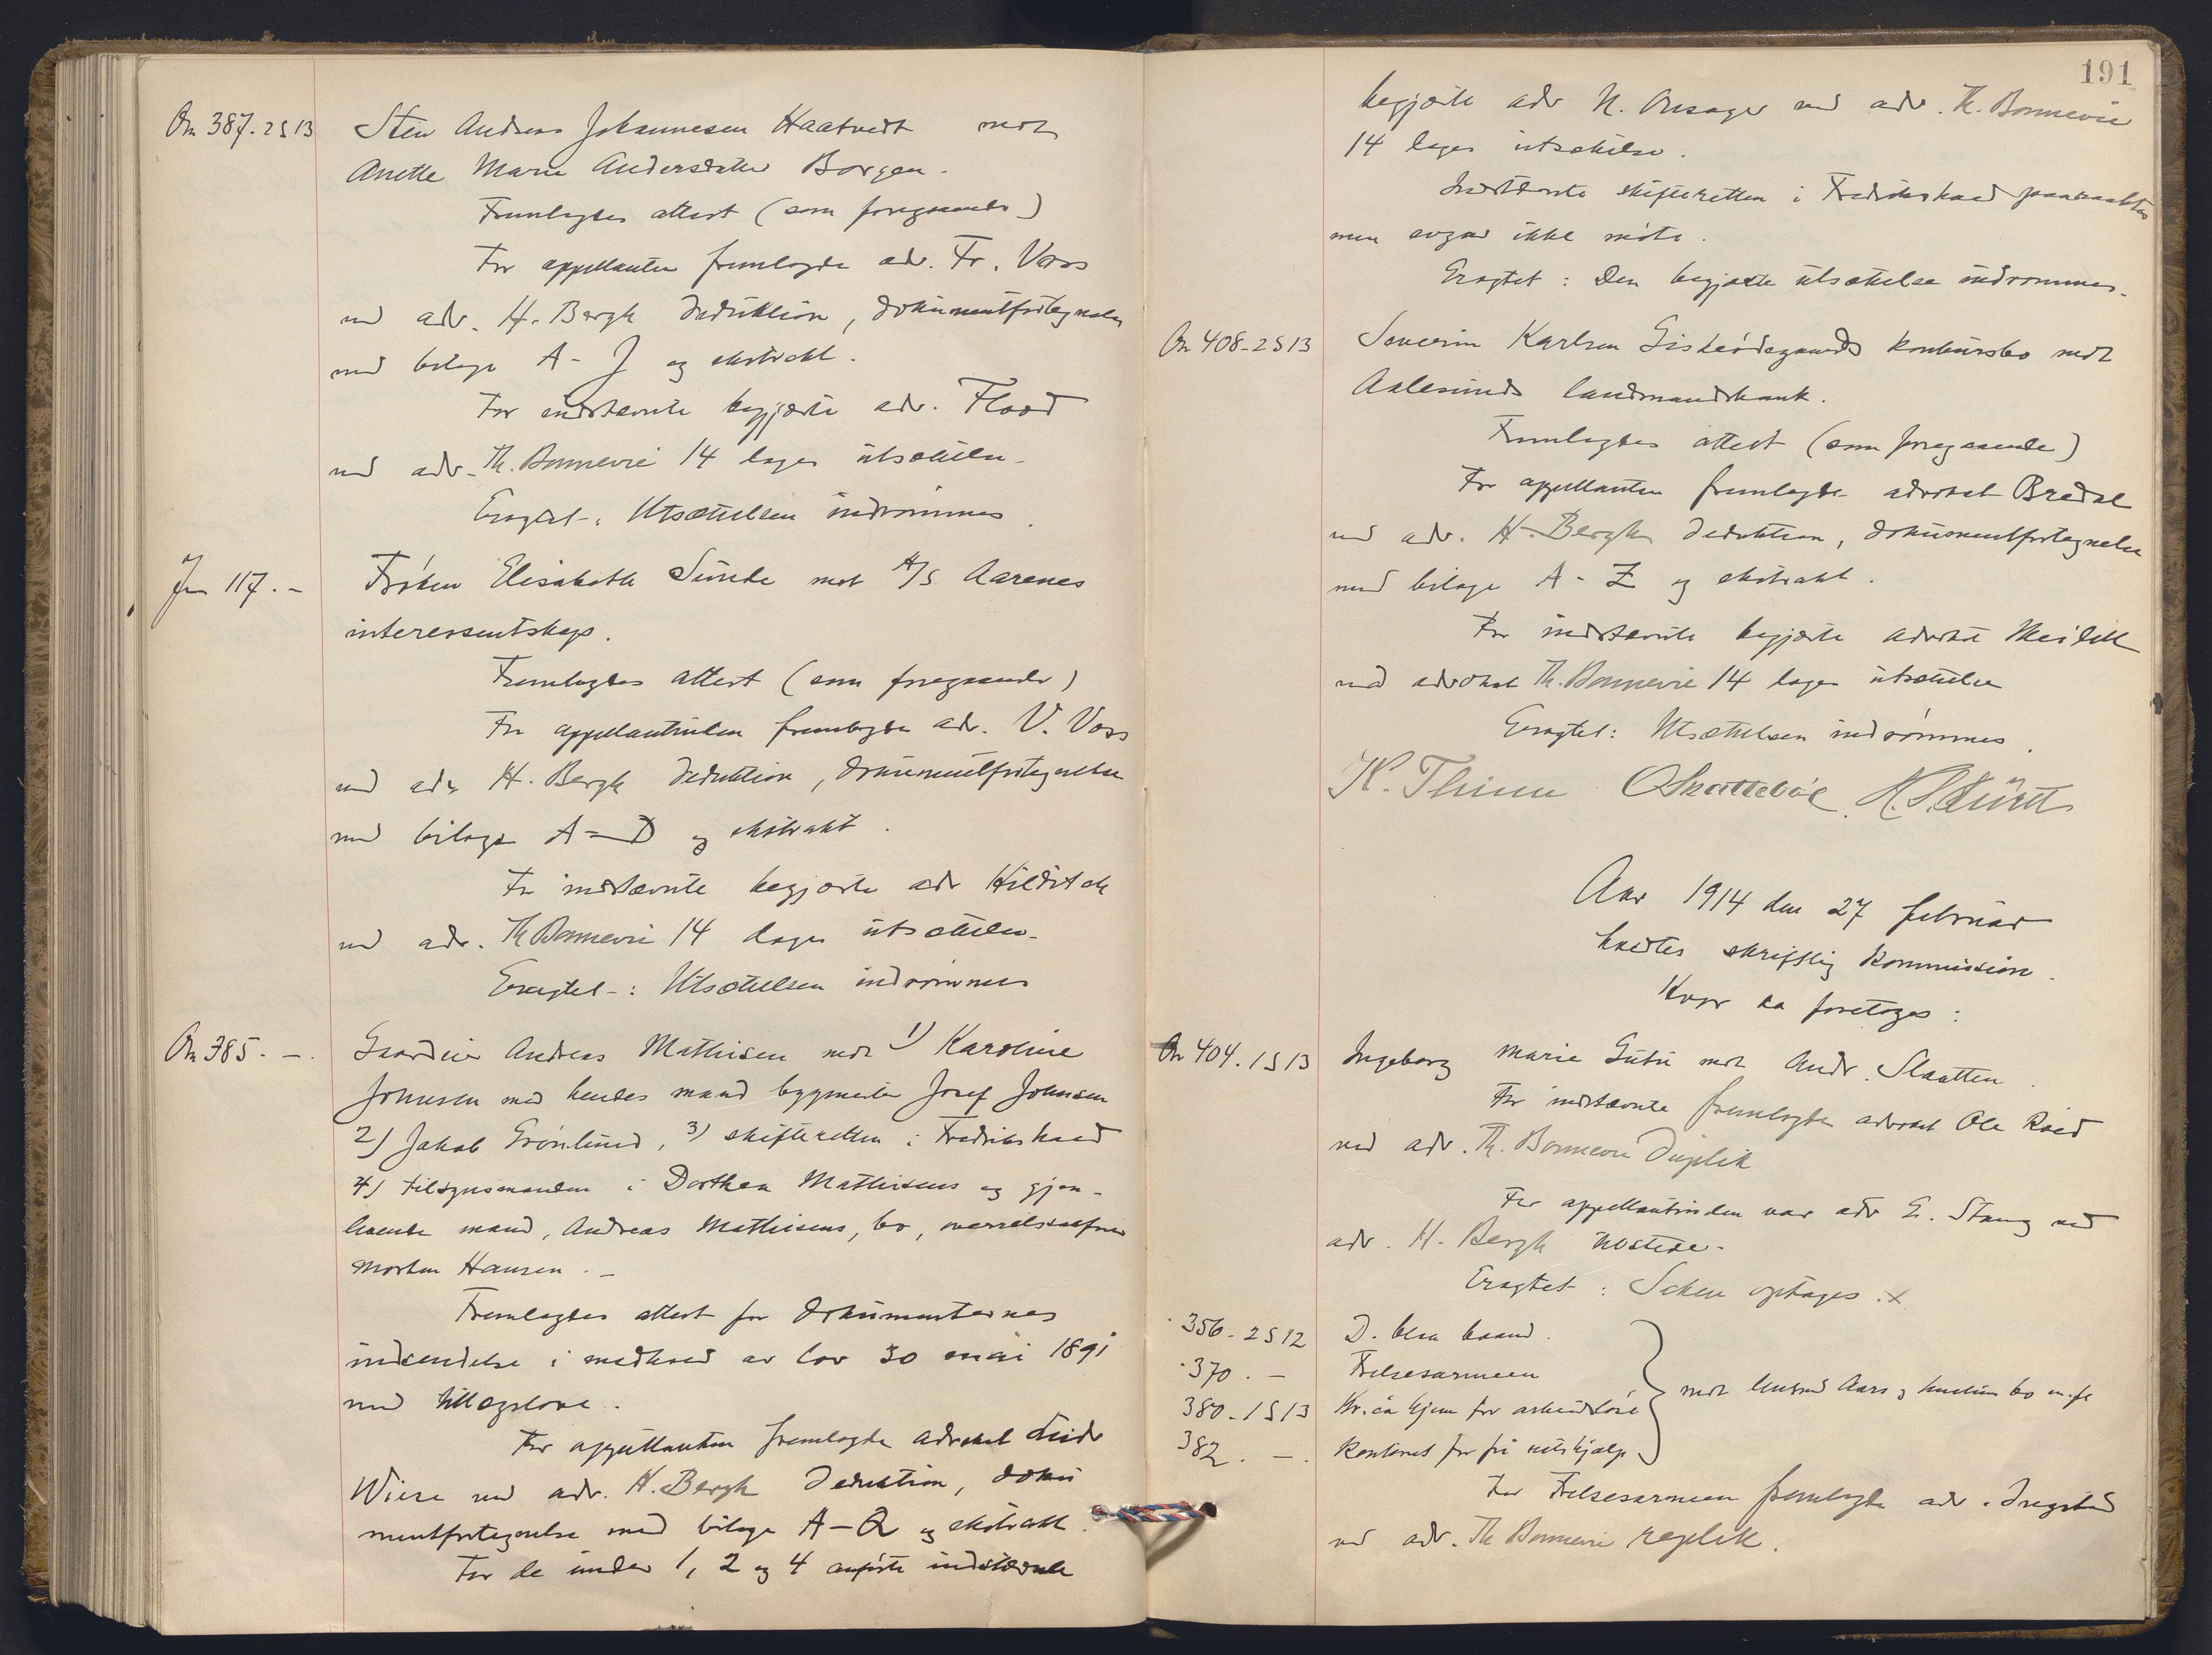 On 387. 2S13 Sten Andreas Johannesen Haatvedt mot
Anette Marie Andersdatter Borgen.
Fremlagdes attest (som foregaaende)
For appellanten fremlagde adv. Fr. Voss
ved adv. H. Bergh deduktion, dokumentfortegnelse
med bilage A - J og ekstrakt.
For indstevnte begjærte adv. Flood
ved adv. Th. Bonnevie 14 dages utsættelse.
Eragtet: Utsættelsen indrømmes.
Jn 117. - Frøken Elisabeth Sunde mot A/S Aarenes
interessentskap.
Fremlagdes attest (som foregaaende)
For appellantinden fremlagde adv. V. Voss
ved adv H. Bergh deduktion, dokumentfortegnelse
med bilage A - D og ekstrakt.
For indstevnte begjærte adv Hilditch
ved adv. Th Bonnevie 14 dages utsættelse.
Eragtet: Utsættelsen indrømmes
On 385. -. Gaardeier Andreas Mathisen mot 1) Karoline
Johnsen med hendes mand bygmester Josef Johnsen
2) Jakob Grønlund, 3) skifteretten i Fredrikshald
4) tilsynsmanden i Dorthea Mathisens og gjen-
levende mand, Andreas Mathisens, bo, overretssakfører
Morten Hansen. -
Fremlagdes attest for dokumenternes
indsendelse i medhold av lov 30 mai 1891
med tillægslove.
For appellanten fremlagde advokat
Wiese ved adv. H. Bergh deduktion, doku
mentfortegnelse med bilage A - Q og ekstrakt.
For de under 1, 2 og 4 anførte indstevnte
191
begjærte adv N. Onsager ved adv. Th. Bonnevie
14 dages utsættelse.
Indstevnte skifteretten i Fredrikshald paaraabtes
men avgav ikke møte.
Eragtet: Den begjærte utsættelse indrømmes.
On 408 - 2S13 Severin Karlsen Giskeødegaards konkursbo mot
Aalesunds landmandsbank.
Fremlagdes attest (som foregaaende)
For appellanten fremlagde advokat Bredal
ved adv. H. Bergh deduktion, dokumentfortegnelse
med bilage A - Z og ekstrakt.
For indstevnte begjærte advokat Meidell
ved advokat Th. Bonnevie 14 dages utsættelse
Eragtet: Utsættelsen indrømmes.
K. Thinn O Skattebøl.
Aar 1914 den 27 februar
holdtes skriftlig kommission.
Hvor da foretoges:
On 404. 1S13 Ingeborg Marie Gutu mot Andr. Slaatten.
For indstevnte fremlagde advokat Ole Røed
ved adv. Th. Bonnevie Duplik
For appellantinden var adv E. Stang ved
adv. H. Bergh tilstede.
Eragtet: Saken optages. x
356 - 2S12 D. blaa baand.
370. - Frelsesarmeen
380 - 1S13 Kr.ia hjem for arbeidsløse
382. -. Kontoret for fri retshjælp
mot lensmd Aars og hustrus bo m. fl
For Frelsesarmeen fremlagde adv.
ved adv. Th Bonnevie replik.